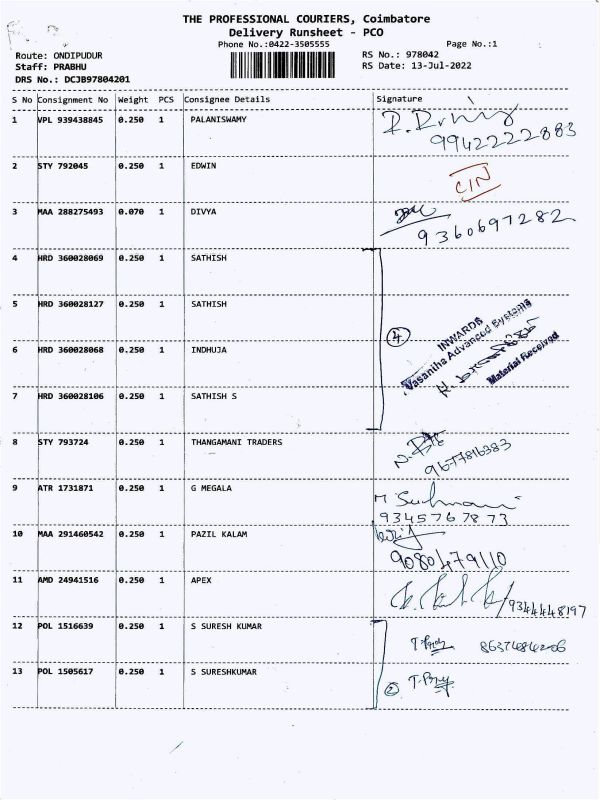 THE PROFESSIONAL COURIERS, Coimbatore
Delivery Runsheet - PCO
Phone No.:0422-3505555
Page No.:1
Route: ONDIPUDUR
RS No.: 978042
Staff: PRABHU
RS Date: 13-Jul-2022
DRS No.: DCJB97804201
S No Consignment No Weight PCS Consignee Details Signature
1 VPL 939438845 0.250 1 PALANISWAMY
9942222883
2 STY 792045 0.250 1 EDWIN
CIN
3 MAA 288275493 0.070 1 DIVYA
9360697282
4 HRD 360028069 0.250 1 SATHISH
5 HRD 360028127 0.250 1 SATHISH
4
INWARDS
Vasantha Advanced Systems
Material Received
6 HRD 360028068 0.250 1 INDHUJA
7 HRD 360028106 0.250 1 SATHISH S
8 STY 793724 0.250 1 THANGAMANI TRADERS
9677816383
9 ATR 1731871 0.250 1 G MEGALA
9345767873
10 MAA 291460542 0.250 1 PAZIL KALAM
9080479110
11 AMD 24941516 0.250 1 APEX
9344448197
12 POL 1516639 0.250 1 S SURESH KUMAR
13 POL 1505617 0.250 1 S SURESHKUMAR
2